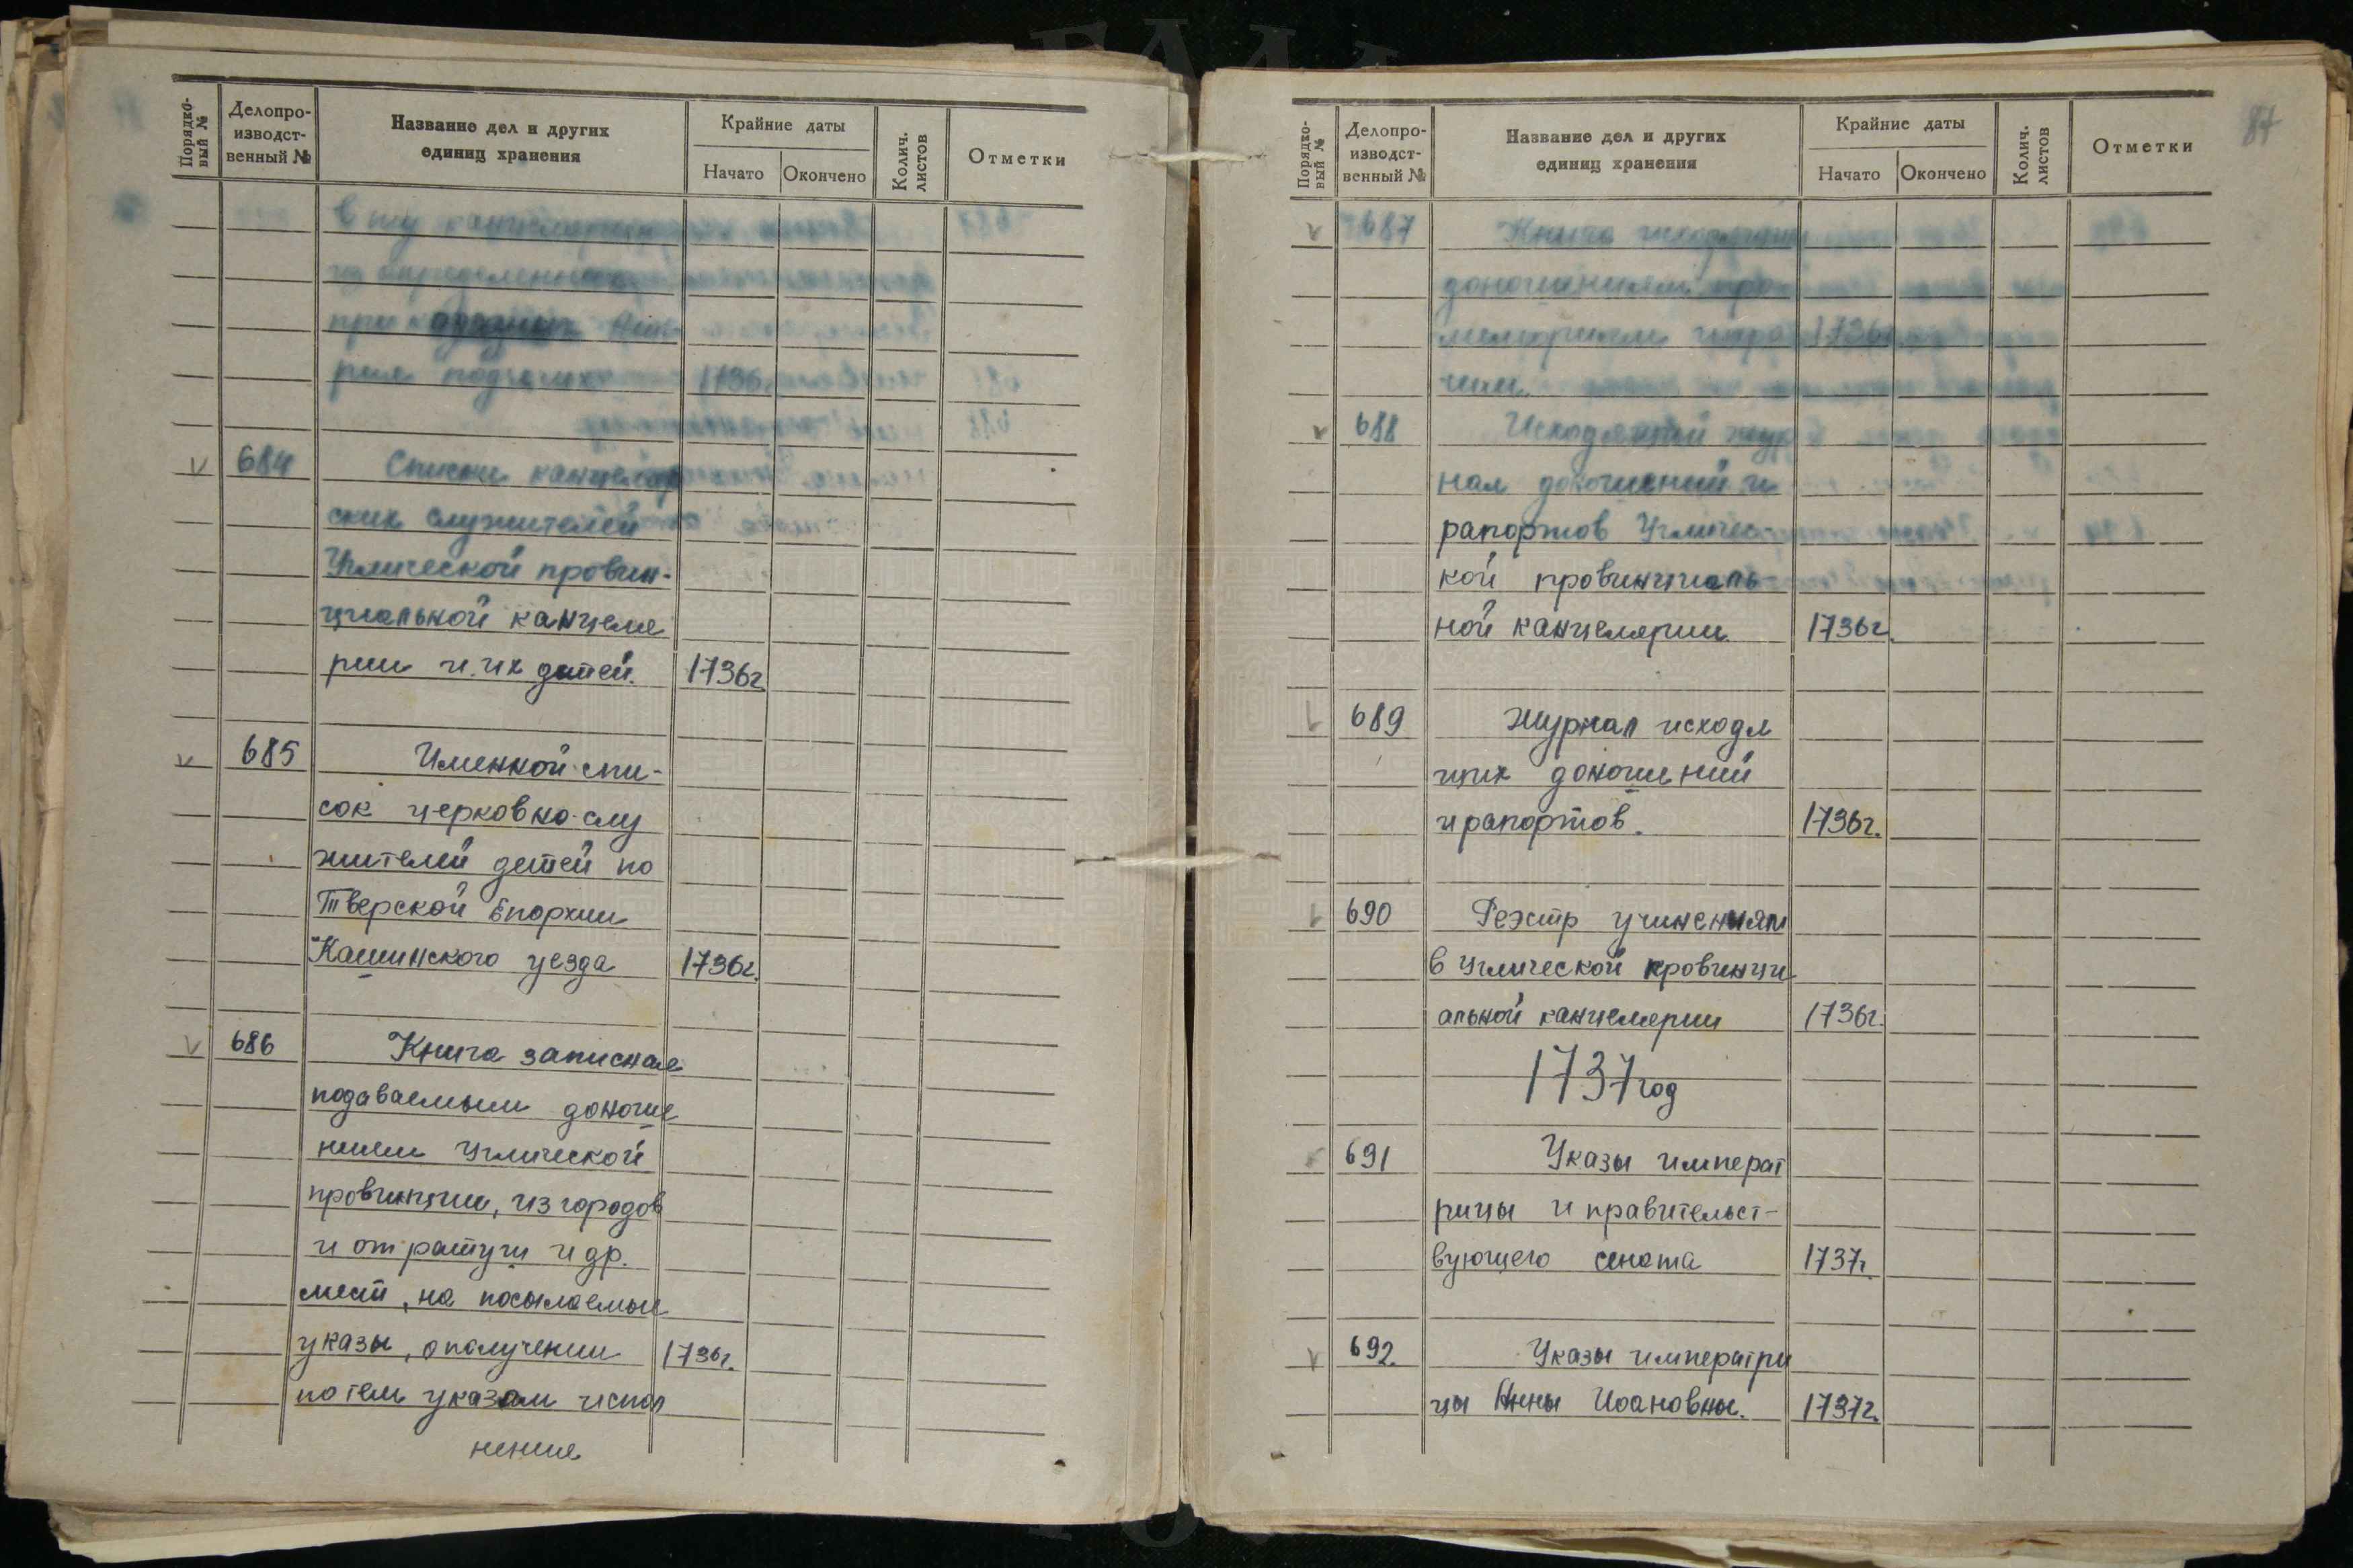 Порядко-
вый №
Делопро-
изводст-
венный №
Название дел и других
единиц хранения
Крайние даты
Начато
Окончено
Колич.
листов
Отметки
в ту канцелярию
из определенных
при
1736
v 684 Списки канцеляр
ских служителей
Угличской провин-
циальной канцеля
рии и их детей. 1736г
v 685 Именной спи-
сок церковно-слу
жителей детей по
Тверской Епархии
Кашинского уезда 1736г.
v 686 Книга записная
подаваемым доноше
ниям Угличской
провинции, из городов
и от ратуги и др.
мест, на посылаемые
указы, о получении 1736г.
по тем указам испол
нение
84
Порядко-
вый №
Делопро-
изводст-
венный №
Название дел и других
единиц хранения
Крайние даты
Начато
Окончено
Колич.
листов
Отметки
v 687 Книга исходящим
доношениям
мемориям 1736г
v 688 Исходящий жур
нал доношений и
рапортов Угличс-
кой провинциаль
ной канцелярии 1736г.
v 689 Журнал исходя
щих доношений
и рапортов. 1736г.
v 690 Реэстр учинениям
в Углической провинци
альной канцелярии 1736г.
1737 год
v 691 Указы императ
рицы и правительст-
вующего сената 1737г.
v 692. Указы императри
цы Анны Иоановны. 1737г.